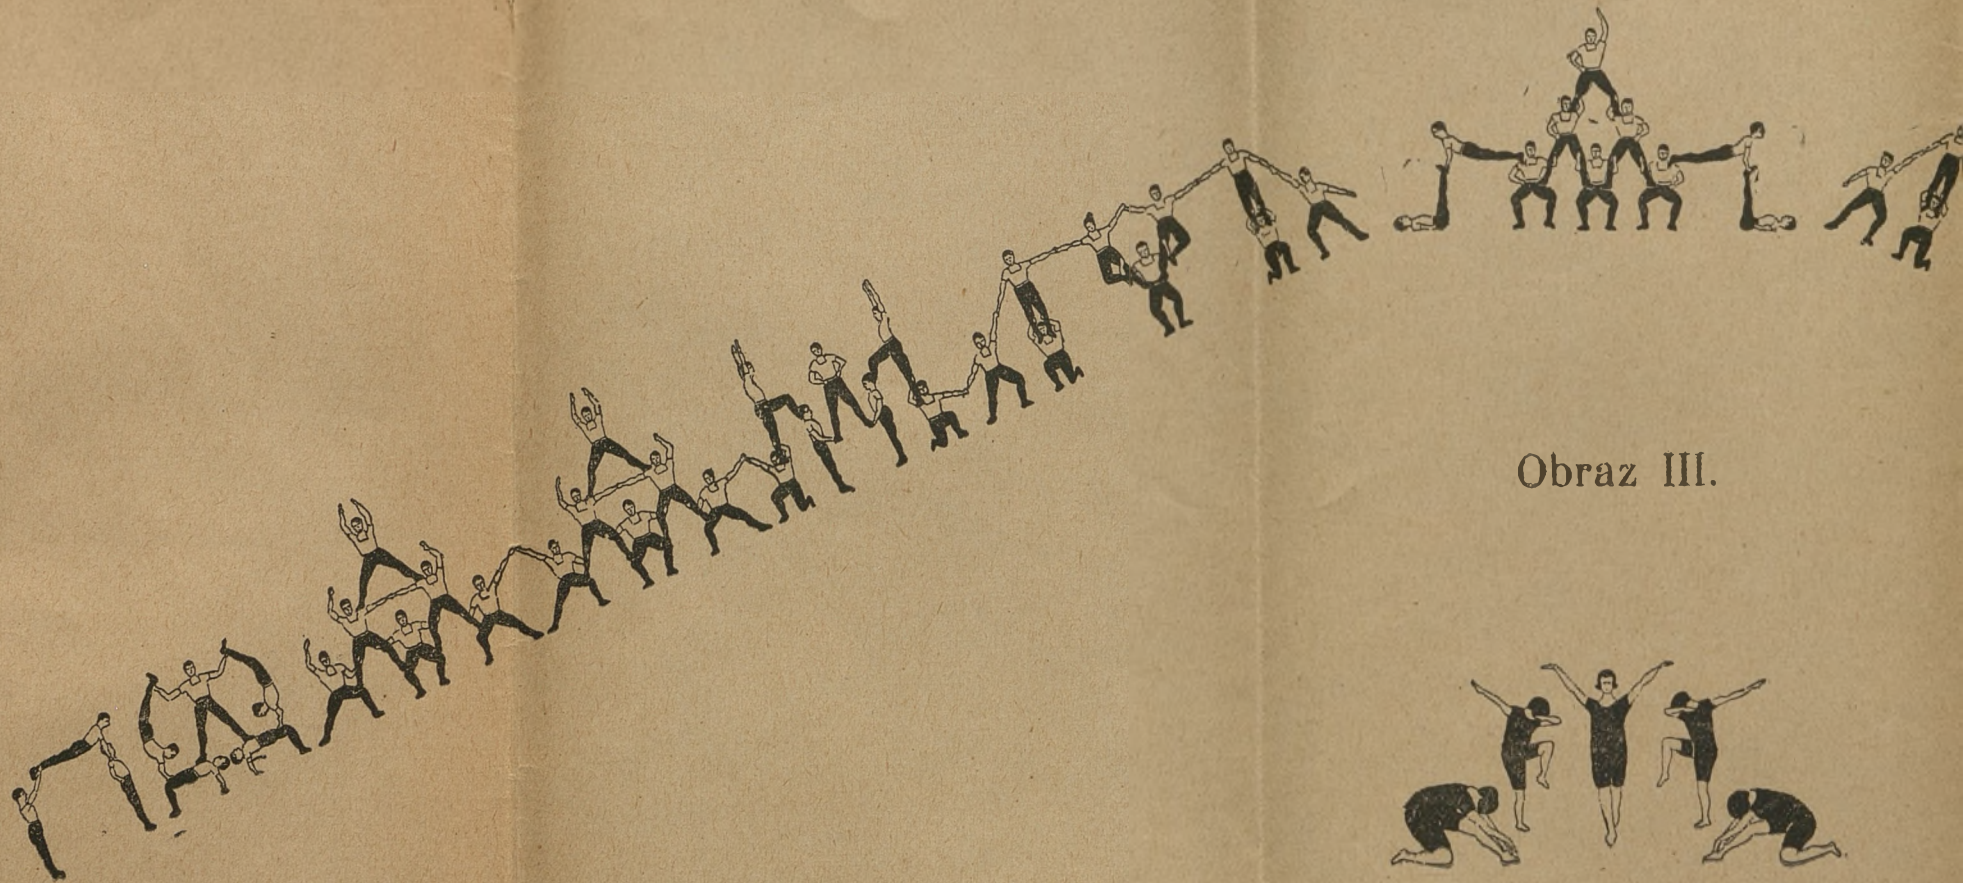 Obraz III.